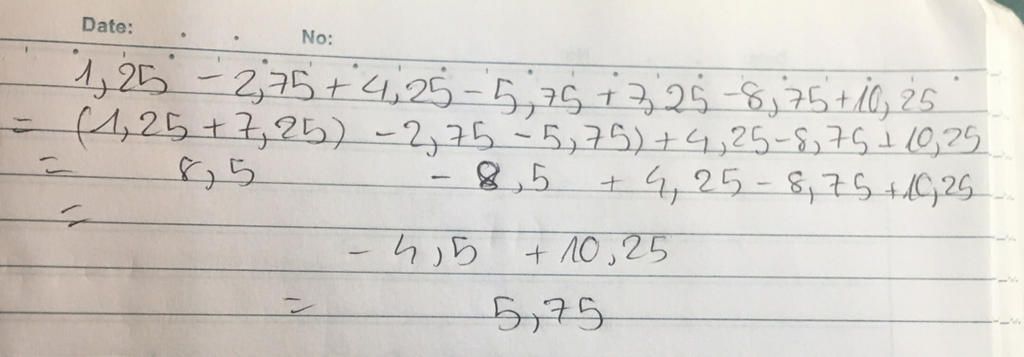 Date: No:
1,25 - 2,75 + 4,25 - 5,75 + 7,25 - 8,75 + 10,25
= (1,25 + 7,25) - 2,75 - 5,75) + 4,25 - 8,75 + 10,25
= 8,5 - 8,5 + 4,25 - 8,75 + 10,25
=
- 4,5 + 10,25
= 5,75